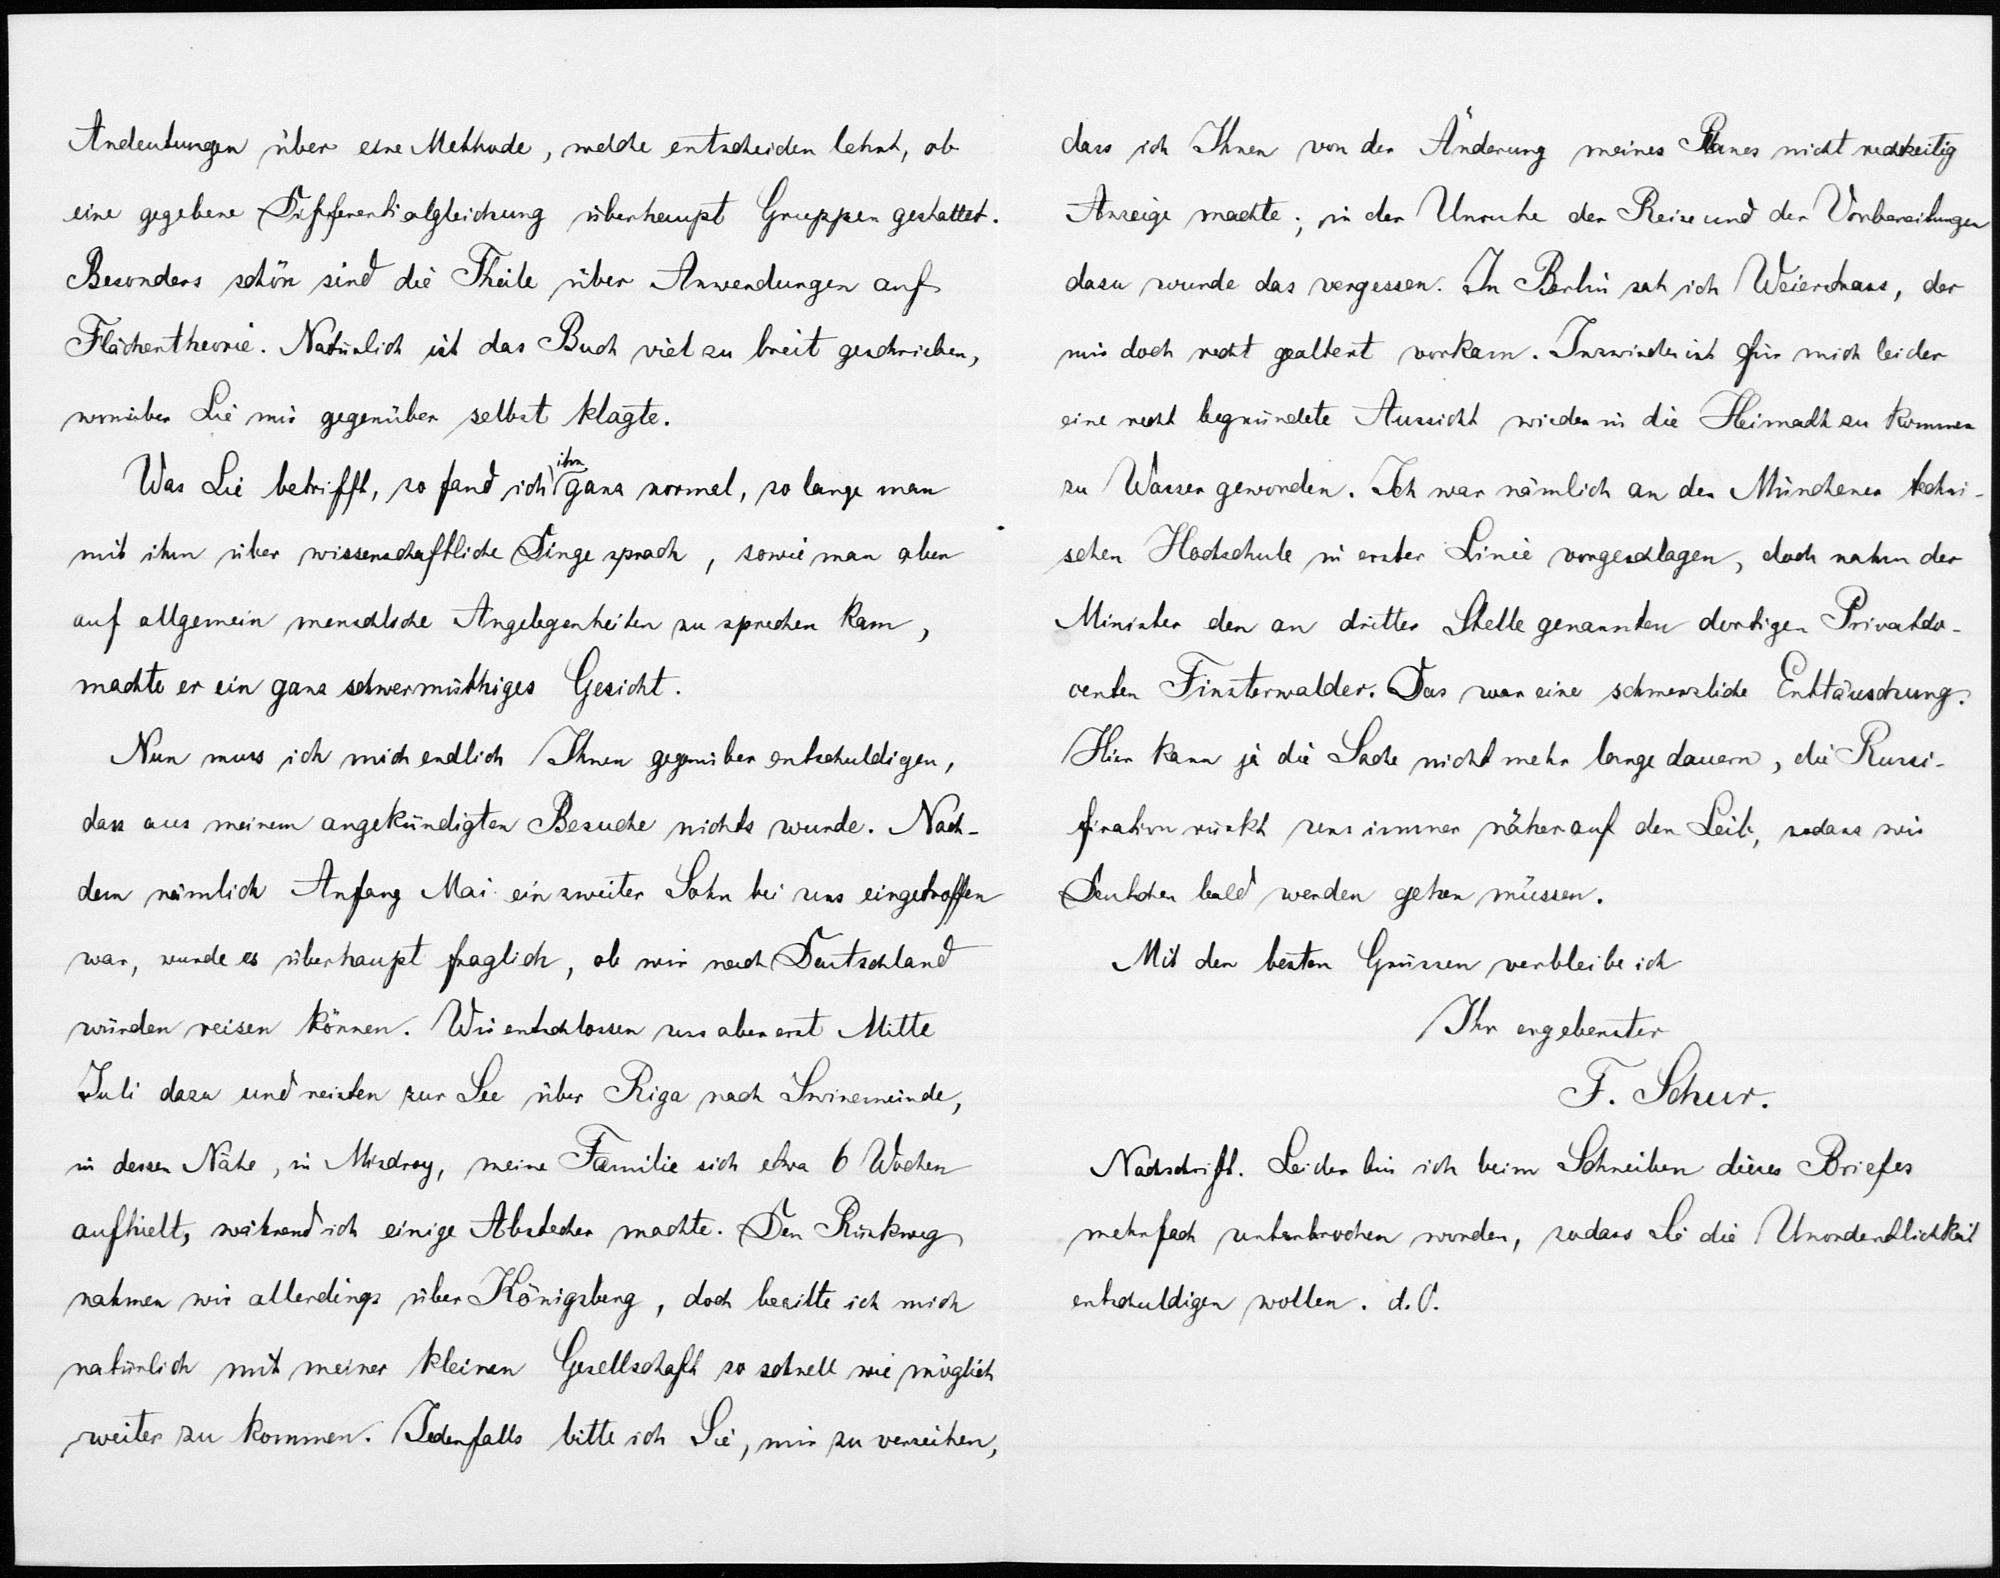 Andeutungen über eine Methode, welche entscheiden lehrt, ob
eine gegebene Differentialgleichung überhaupt Gruppen gestattet.
Besonders schön sind die Theile über Anwendungen auf
Flächentheorie. Natürlich ist das Buch viel zu breit geschrieben,
worüber Lie mir gegenüber selbst klagte.
Was Lie betrifft, so fand ich ihn ganz normal, so lange man
mit ihm über wissenschaftliche Dinge sprach, sowie man aber
auf allgemein menschliche Angelegenheiten zu sprechen kam,
machte er ein ganz schwermüthiges Gesicht.
Nun muss ich mich endlich Ihnen gegenüber entschuldigen,
dass aus meinem angekündigten Besuche nichts wurde. Nach-
dem nämlich Anfang Mai ein zweiter Sohn bei uns eingetroffen
war, wurde es überhaupt fraglich, ob wir nach Deutschland
würden reisen können. Wir entschlossen uns aber erst Mitte
Juli dazu und reisten zur See über Riga nach Swinemünde,
in dessen Nähe, in Misdroy, meine Familie sich etwa 6 Wochen
aufhielt, während ich einige Abstecher machte. Den Rückweg
nahmen wir allerdings über Königsberg, doch beeilte ich mich
natürlich mit meiner kleinen Gesellschaft so schnell wie möglich
weiter zu kommen. Jedenfalls bitte ich Sie, mir zu verzeihen,
dass ich Ihnen von der Änderung meines Planes nicht rechtzeitig
Anzeige machte; in der Unruhe der Reise und der Vorbereitungen
dazu wurde das vergessen. In Berlin sah ich Weierstrass, der
mir doch recht gealtert vorkam. Inzwischen ist für mich leider
eine recht begründete Aussicht wieder in die Heimath zu kommen
zu Wasser geworden. Ich war nämlich an der Münchener techni-
schen Hochschule in erster Linie vorgeschlagen, doch nahm der
Minister den an dritter Stelle genannten dortigen Privatdo-
centen Finsterwalder. Das war eine schmerzliche Enttäuschung.
Hier kann ja die Sache nicht mehr lange dauern, die Russi-
fication rückt uns immer näher auf den Leib, sodass wir
Deutschen bald werden gehen müssen.
Mit den besten Grüssen verbleibe ich
Ihr ergebenster
F. Schur.
Nachschrift. Leider bin ich beim Schreiben dieses Briefes
mehrfach unterbrochen worden, sodass Sie die Unordentlichkeit
entschuldigen wollen. d. O.